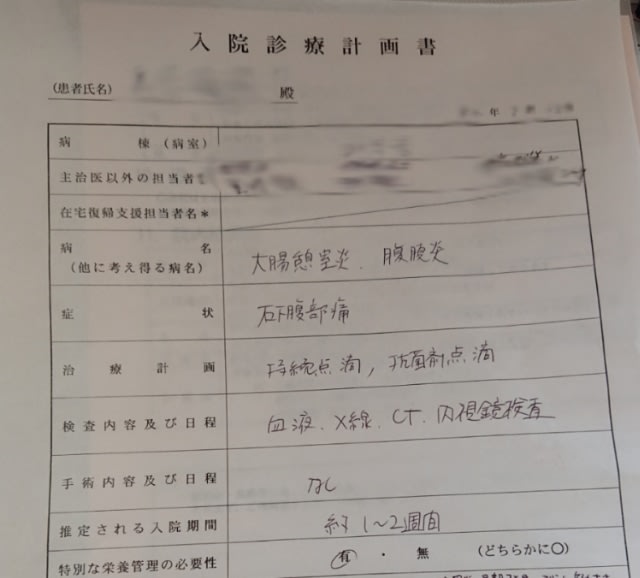 入院診療計画書
(患者氏名) 殿
年
病棟(病室)
主治医以外の担当者
在宅復帰支援担当者名*
病名
(他に考え得る病名)
大腸憩室炎、腹膜炎
症状
右下腹部痛
治療計画
持続点滴, 抗菌剤点滴
検査内容及び日程
血液、X線、CT、内視鏡検査
手術内容及び日程
なし
推定される入院期間
約1~2週間
特別な栄養管理の必要性
有・無 (どちらかに○)